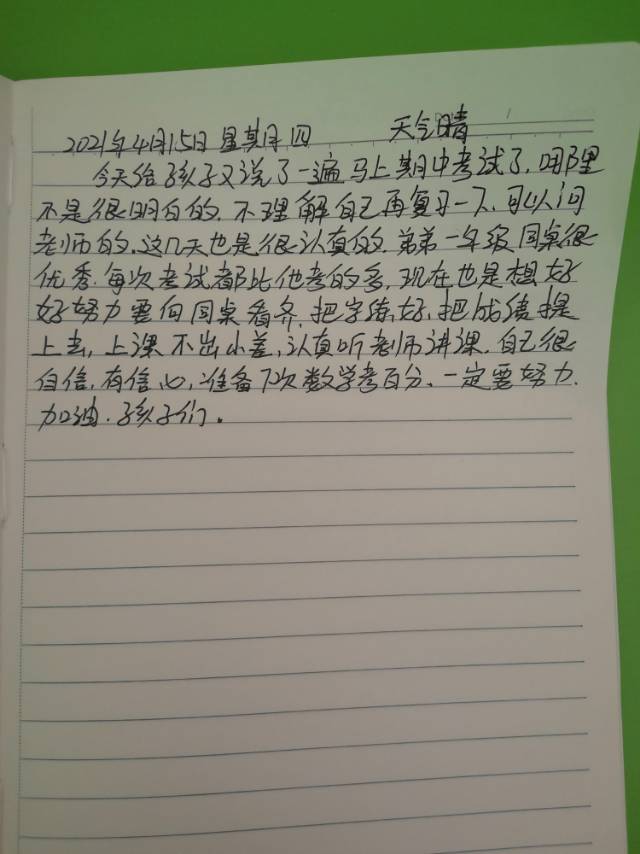 2021年4月15日 星期四 天气晴
今天给孩子又说了一遍马上期中考试了,哪里
不是很明白的,不理解自己再复习一下,可以问
老师的,这几天也是很认真的,弟弟一年级同桌很
优秀,每次考试都比他考的多,现在也是想好
好努力要向同桌看齐,把字练好,把成绩提
上去,上课不出小差,认真听老师讲课,自己很
自信,有信心,准备下次数学考百分、一定要努力,
加油,孩子们。